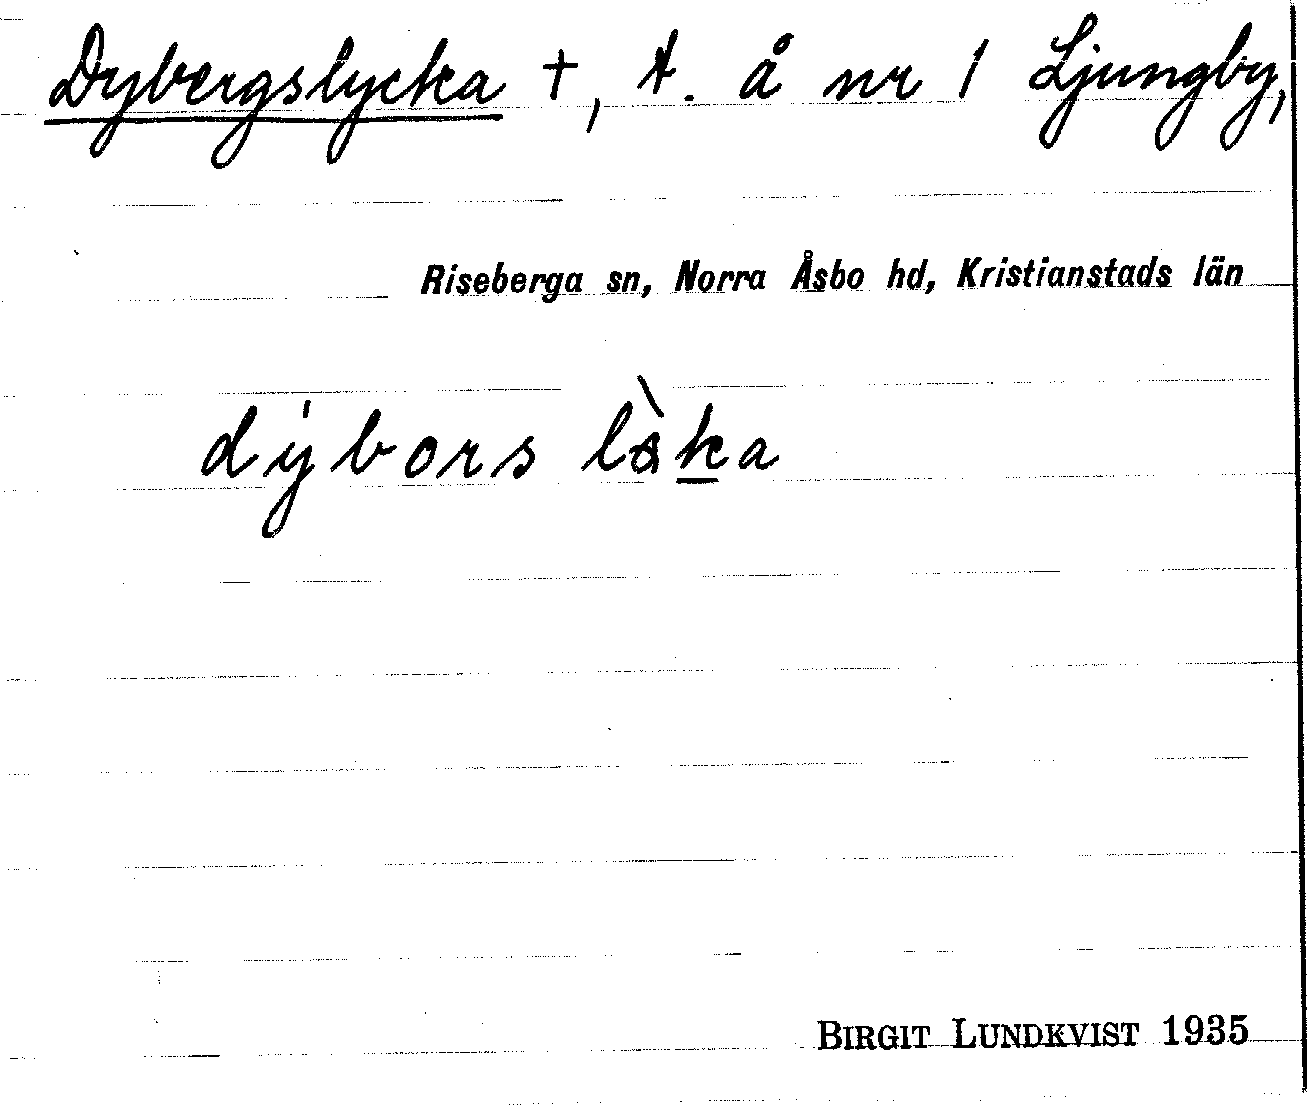 Dybergslycka †, t. å nr 1 Ljungby,
Riseberga sn, Norra Åsbo hd, Kristianstads län
dýbors làka
BIRGIT LUNDKVIST 1935